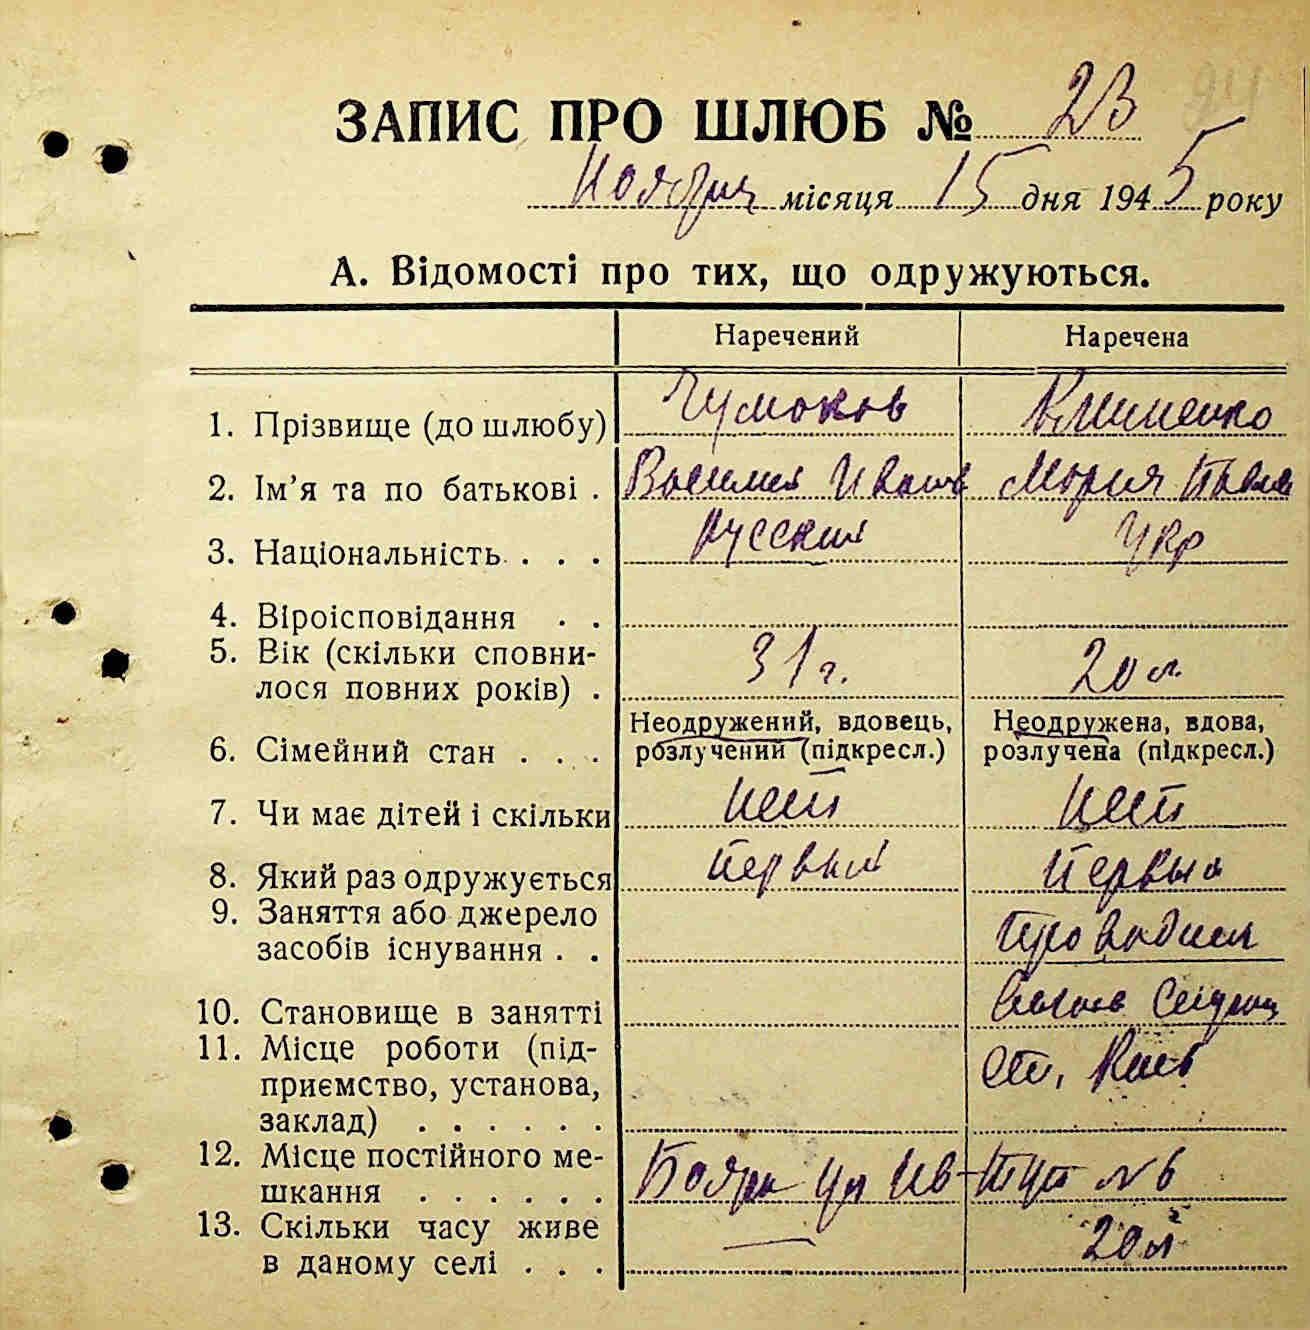 24
ЗАПИС ПРО ШЛЮБ № 23
Ноября місяця 15 дня 1945 року
А. Відомості про тих, що одружуються.
Наречений Наречена
1. Прізвище (до шлюбу) Чумаков Клименко
2. Ім’я та по батькові . Василий Иванов Мария Павл
3. Національність . . . Русский Укр
4. Віроісповідання . .
5. Вік (скільки сповни-
лося повних років) . 31 г. 20 л.
Неодружений, вдовець, Неодружена, вдова,
6. Сімейний стан . . . розлучений (підкресл.) розлучена (підкресл.)
7. Чи має дітей і скільки Нет Нет
8. Який раз одружується Первый Первый
9. Заняття або джерело
засобів існування . . Проводник
10. Становище в занятті
11. Місце роботи (під-
приємство, установа, ст. Киев
заклад) . . . . . .
12. Місце постійного ме-
шкання . . . . . . Боярк ул № 6
13. Скільки часу живе
в даному селі . . . — 20 л